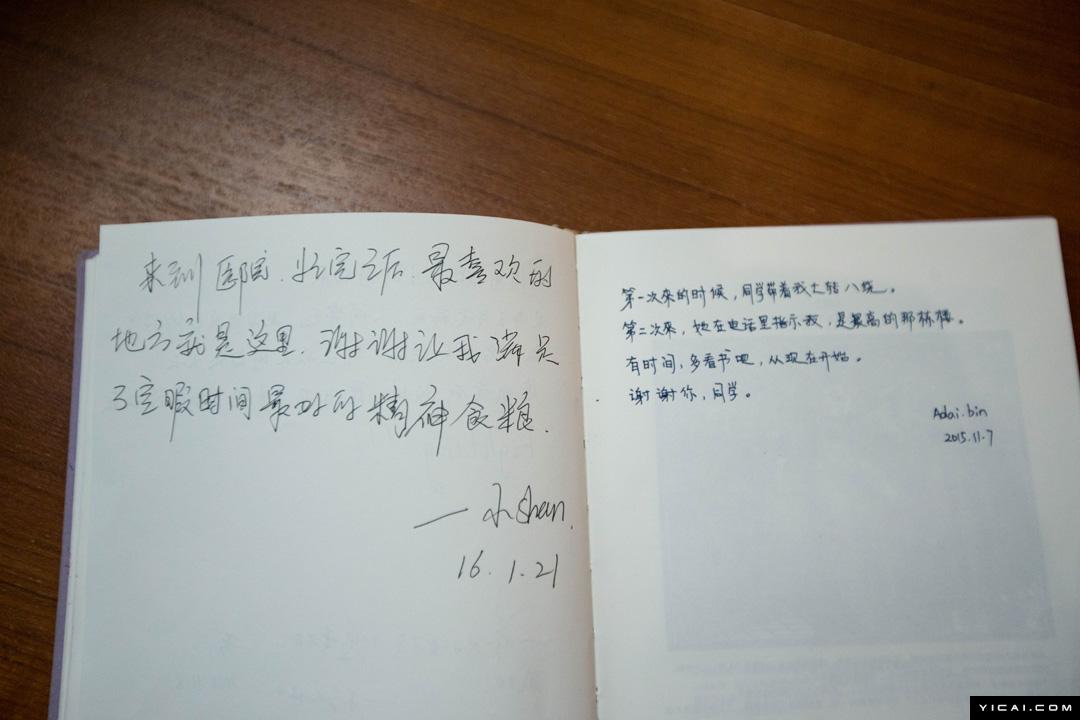 来到医院.住完之后.最喜欢的
地方就是这里.谢谢让我满足
了空暇时间最好的精神食粮.
— 小Shan.
16.1.21
第一次来的时候，同学带着我七转八绕。
第二次来，她在电话里指示我，是最高的那栋楼。
有时间，多看书吧，从现在开始。
谢谢你，同学。
Adai.bin
2015.11.7
YICAI.COM